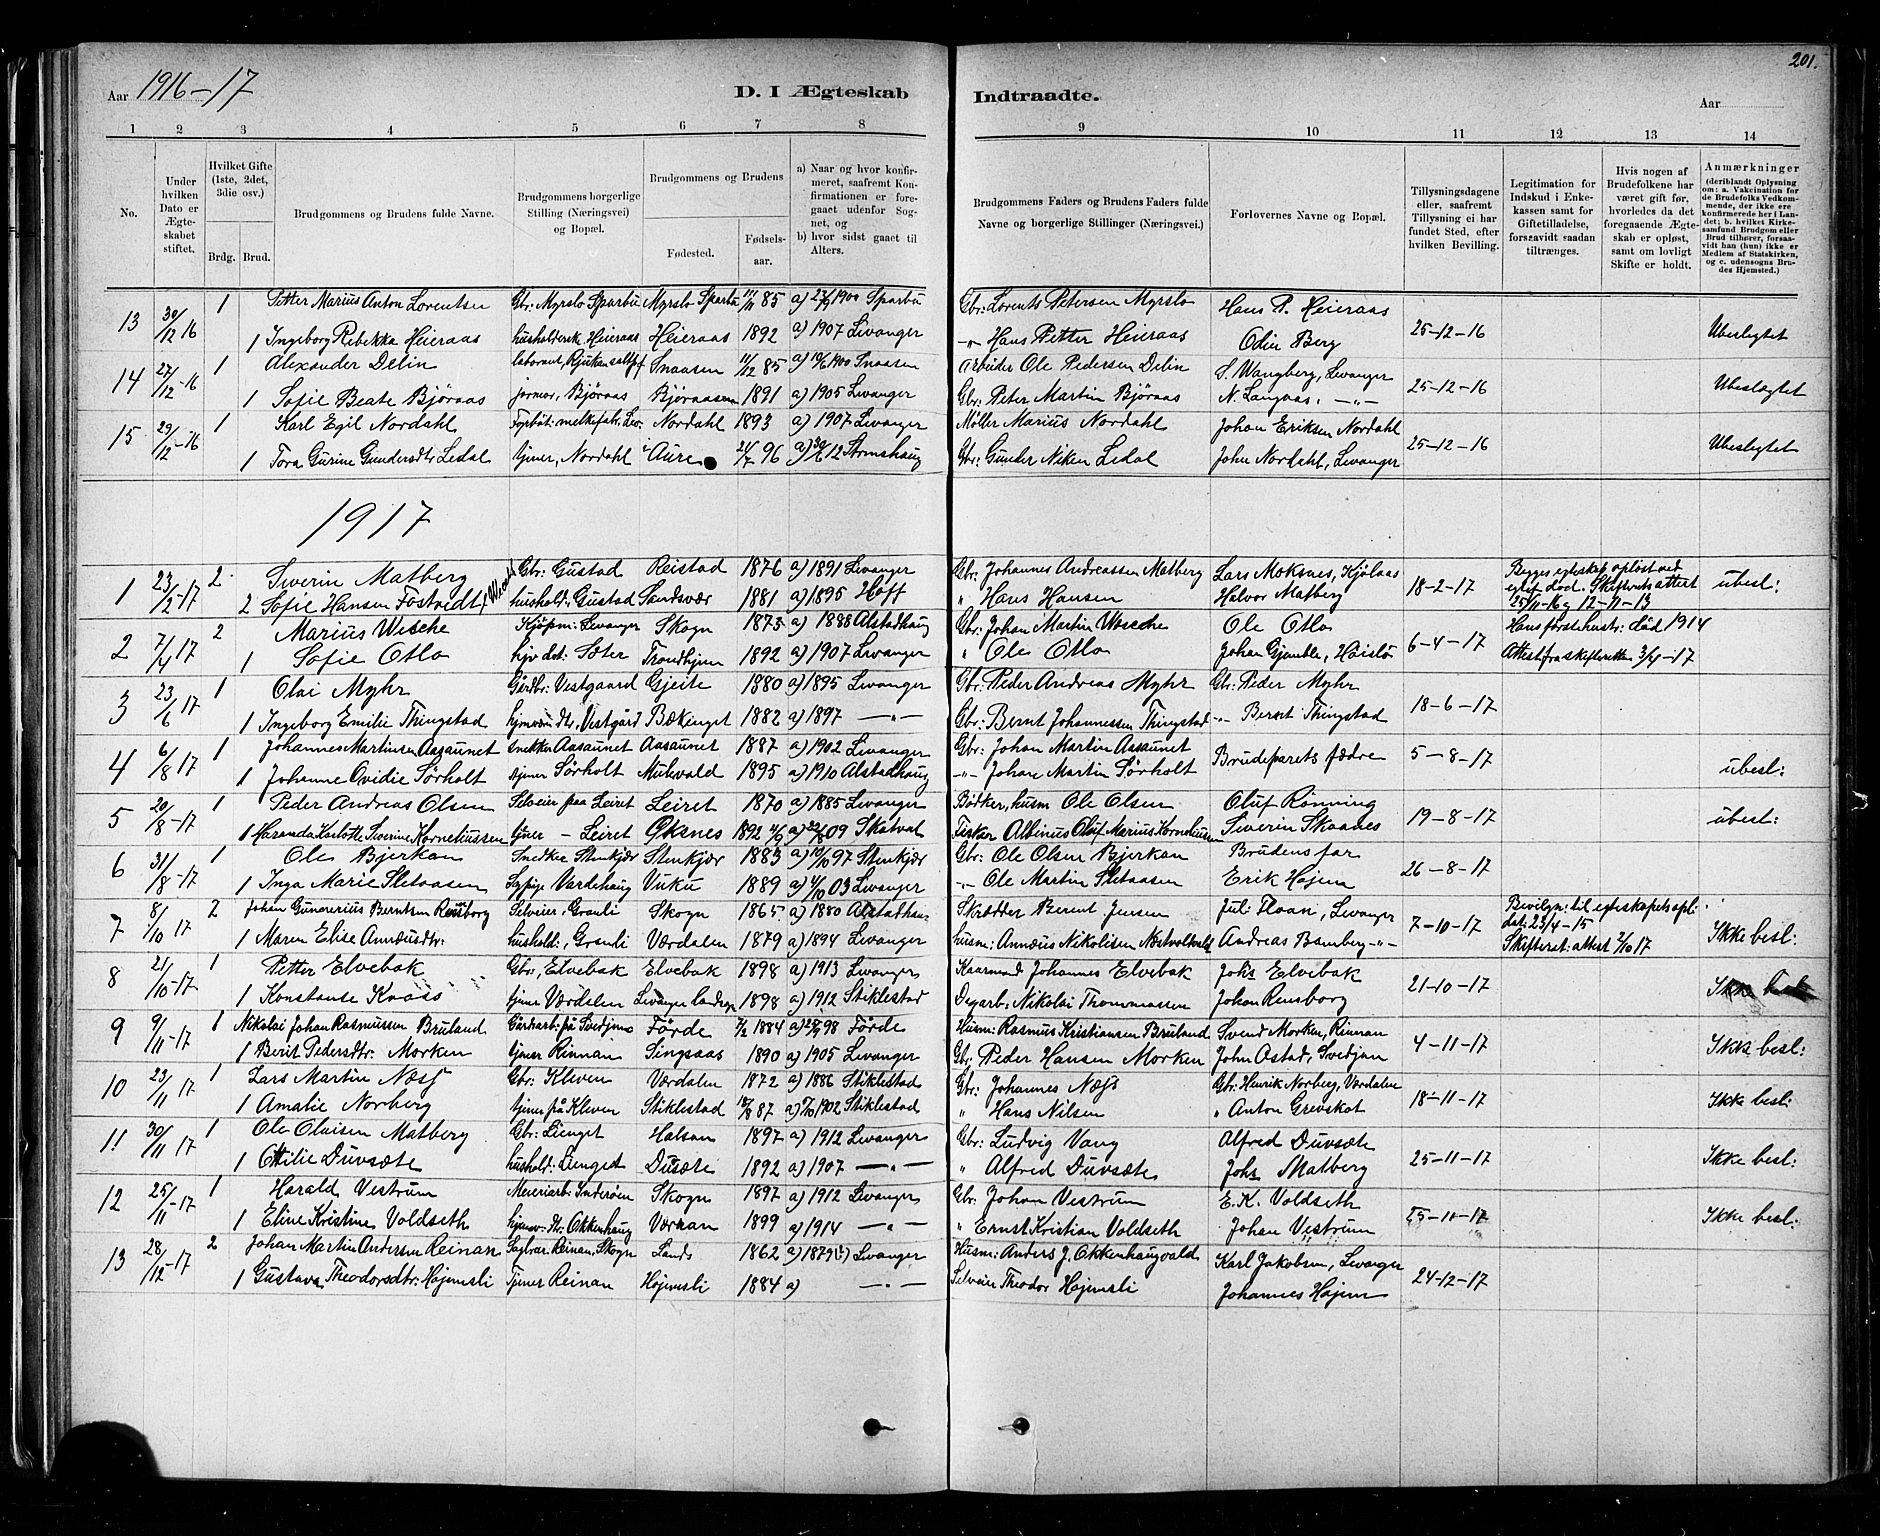 201.
Aar 1916-17
D. I Ægteskab Indtraadte.
Aar
1 2 3 4 5 6 7 8 9 10 11 12 13 14
No.
Under hvilken Dato er Ægteskabet stiftet.
Hvilket Gifte (1ste, 2det, 3die osv.)
Brdg. Brud.
Brudgommens og Brudens fulde Navne.
Brudgommens borgerlige Stilling (Næringsvei) og Bopæl.
Brudgommens og Brudens
Fødested.
Fødselsaar.
a) Naar og hvor konfirmeret, saafremt Konfirmationen er foregaaet udenfor Sognet, og
b) hvor sidst gaaet til Alters.
Brudgommens Faders og Brudens Faders fulde Navne og borgerlige Stillinger (Næringsvei.)
Forlovernes Navne og Bopæl.
Tillysningsdagene eller, saafremt Tillysning ei har fundet Sted, efter hvilken Bevilling.
Legitimation for Indskud i Enkekassen samt for Giftetilladelse, forsaavidt saadan tiltrænges.
Hvis nogen af Brudefolkene har været gift før, hvorledes da det foregaaende Ægteskab er opløst, samt om lovligt Skifte er holdt.
Anmærkninger (deriblandt Oplysning om: a. Vakcination for de Brudefolks Vedkommende, der ikke ere konfirmerede her i Landet; b. hvilket Kirkesamfund Brudgom eller Brud tilhører, forsaavidt han (hun) ikke er Medlem af Statskirken, og c. udensogns Brudes Hjemsted.)
13 30/12 16 1 Petter Marius Anton Lorentsen Gbr: Myrslo Sparbu Myrslo Sparbu 11/11 85 a) 23/9 1900 Sparbu Gbr: Lorents Petersen Myrslo Hans P. Heieraas 25-12-16 Ubeslegtet
1 Ingeborg Rebekka Heieraas husholdersk. Heieraas Heieraas 1892 a) 1907 Levanger -"- Hans Petter Heieraas Odin Berg
14 27/12-16 1 Alexander Delin laborant, Rjukan saltpf Snaasen 11/12 85 a) 10/6 1900 Snaasen Arbeider Ole Pedersen Delin S. Wangberg, Levanger 25-12-16 Ubeslægtet
1 Sofie Beate Bjøraas jormor, Bjøraas Bjøraasen 1891 a) 1905 Levanger Gbr: Peter Martin Bjøraas N. Langaas, -"-
15 29/12-16 1 Karl Egil Nordahl Nordahl 1893 a) 1907 Levanger Møller Marius Nordahl Johan Eriksen Nordahl 25-12-16 Ubeslegtet
1 Tora Gurine Gundersdtr Lidal tjener, Nordahl Aure 21/7 96 a) 30/6 12 Gbr: Gunder Niken Lidal John Nordahl, Levanger
1917
1 23/2-17 2 Severin Matberg Gbr: Gustad Reistad 1876 a) 1891 Levanger Gbr: Johannes Andreassen Matberg Lars Moksnes, Kjølaas 18-2-17 Begges egteskap opløst ved egtef. død. Skifterets attest 25/11-16 og 12-11-13 ubesl:
2 Sofie Hansen Fostvedt hushold: Gustad Sandsvær 1881 a) 1895 Hoff " Hans Hansen Halvor Matberg
2 7/4 17 2 Marius Wesche Kjøpm: Levanger Skogn 1875 a) 1888 Alstadhaug Gbr: Johan Martin Wesche Ole Otlo 6-4-17 Hans første hustr: død 1914
1 Sofie Otlo Trondhjem 1892 a) 1907 Levanger " Ole Otlo Johan Gjemble, Høislo Attest fra skifteretten 3/4-17
3 23/6 17 1 Olai Myhr Gårdbr: Vestgaard Gjeite 1880 a) 1895 Levanger Gbr: Peder Andreas Myhr Gbr: Peder Myhr 18-6-17
1 Ingeborg Emilie Thingstad Vestgård Bækenget 1882 a) 1897 -"- Gbr: Bernt Johannessen Thingstad -"- Bernt Thingstad
4 6/8 17 1 Johannes Martinsen Aasaunet snekker Aasaunet Aasaunet 1887 a) 1902 Levanger Gbr: Johan Martin Aasaunet Brudeparets fædre 5-8-17 ubesl:
1 Johanne Ovidie Sørholt tjener Sørholt Mulevald 1895 a) 1910 Alstadhaug -"- Johan Martin Sørholt
5 20/8-17 1 Peder Andreas Olsen Selveier paa Leiret Leiret 1870 a) 1885 Levanger Bødker, husm Ole Olsen Oluf Rønning 19-8-17 ubesl:
1 Haranda Karlotte Severine Korneliussen tjener - Leiret Øksnes 1892 4/9 a) 22/8 09 Skatval Fisker Albinus Oluf Marius Korneliussen Severin Skaanes
6 31/8-17 1 Ole Bjerkan Snedker Stenkjær Stenkjær 1883 a) 10/10 97 Stenkjær Gbr: Ole Olsen Bjerkan Brudens far 26-8-17
1 Inga Marie Sletaasen Sypige Vardehaug Vuku 1889 a) 4/10 03 Levanger -"- Ole Martin Sletaasen Erik Højem
7 8/10 17 2 Johan Gunerius Berntsen Rensborg Selveier, Granli Skogn 1865 a) 1880 Alstadhau Skrædder Bernt Jensen Jul: Floan, Levanger 7-10-17 Bevilgn: til egteskapets opl. dat: 23/4-15 Skifteret: attest 2/10 17 Ikke besl:
1 Maren Elise Annæusdtr: hushold:, Granli Værdalen 1879 a) 1894 Levanger husm: Annæus Nikolisen Andreas Bamberg -"-
8 21/10-17 1 Petter Elvebak Gbr, Elvebak Elvebak 1898 a) 1913 Levanger Kaarmand Johannes Elvebak Johs Elvebak 21-10-17 Ikke besl
1 Konstanse Knaas tjener Værdalen Levanger landsogn 1898 a) 1912 Stiklestad Dagarb: Nikolai Thommassen Johan Rensborg
9 9/11-17 1 Nikolai Johan Rasmussen Bruland Gårdarb: på Svedjan Førde 7/2 1884 a) 25/9 98 Førde Husm: Rasmus Kristiansen Bruland Svend Morken, Rinnan 4-11-17 Ikke besl:
1 Berit Pedersdtr: Morken tjener Rinnan Singsaas 1890 a) 1905 Levanger Gbr: Peder Hansen Morken John Østad, Svedjan
10 23/11 17 1 Lars Martin Næss Gbr: Kleven Værdalen 1872 a) 1886 Stiklestad Gbr: Johannes Næss Gbr: Henrik Norberg, Værdalen 18-11-17 Ikke besl:
1 Amalie Norberg tjener på Kleven Stiklestad 18/8 87 a) 5/10 1902 Stiklestad " Hans Nilsen " Anton Grevskot
11 30/11 17 1 Ole Olaisen Matberg Gbr: Lienget Halsan 1897 a) 1912 Levanger Gbr: Ludvig Vang Alfred Duvsæte 25-11-17 Ikke besl:
1 Ottilie Duvsæte hushold: Lienget Dusæte 1892 a) 1907 -"- " Alfred Duvsæte Johs Matberg
12 25/11-17 1 Harald Vestrum Meieriarb: Inderøen Skogn 1897 a) 1912 Levanger Gbr. Johan Vestrum E. K. Voldseth 25-11-17 Ikke besl:
1 Eline Kristine Voldseth Okkenhaug Værran 1899 a) 1914 -"- " Ernst Kristian Voldseth Johan Vestrum
13 28/12-17 2 Johan Martin Andersen Reinan Reinan, Skogn Lands 1862 a) 1879 Levanger Husm: Anders J. Okkenhaugvald Karl Jakobsen, Levanger 24-12-17
1 Gustava Theodorsdtr: Højemsli Tjener Reinan Højemsli 1884 a) -"- Selveier Theodor Højemsli Johannes Højem